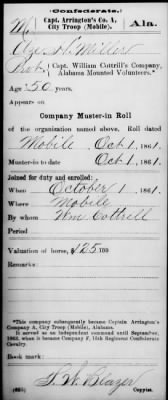 (Confederate.)
M
Capt. Arrington's Co. A,
City Troop (Mobile),
Ala.
Miller
Capt. William Cottrill's Company,
Alabama Mounted Volunteers.*
Age 50 years.
Appears on
Company Muster-in Roll
of the organization named above. Roll dated
Mobile Oct 1, 1861.
Muster-in to date Oct 1, 1861.
Joined for duty and enrolled:
When October 1, 1861.
Where Mobile
By whom Wm Cottrill
Period
Valuation of horse, $425 100
Remarks:
*This company subsequently became Captain Arrington's
Company A, City Troop (Mobile), Alabama.
It served as an independent command until September,
1862, when it became Company F, 15th Regiment Confederate
Cavalry.
Book mark:
Copyist.